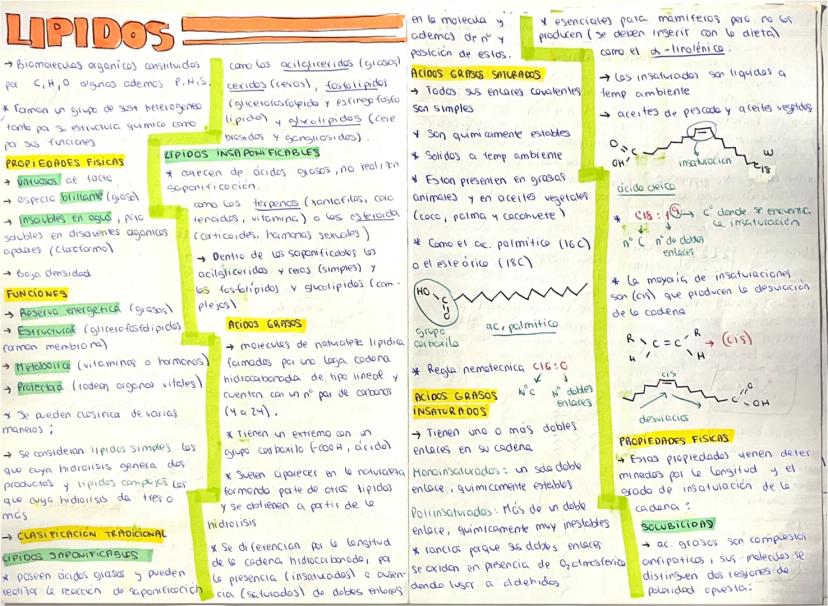 LIPIDOS
→ Biomoleculas organicas constituidas
por C, H, O algunas ademas P, N, S.
* Forman un grupo de sust heterogeneo
tanto por su estructura quimica como
por sus funciones
PROPIEDADES FISICAS
→ Untuosos al tacto
→ aspecto brillante (grasa)
→ Insolubles en agua, pero
solubles en disolventes organicos
apolares (cloroformo)
→ baja densidad
FUNCIONES
→ Reserva energetica (grasas)
→ Estructural (glicerofosfolipidos
forman membrana)
→ Metabolica (vitaminas o hormonas)
→ Protectora (rodean organos vitales)
* Se pueden clasificar de varias
maneras:
→ se consideran lipidos simples los
que cuya hidrolisis genera dos
productos y lipidos complejos los
que cuya hidrolisis da tres o
más
→ CLASIFICACIÓN TRADICIONAL
LIPIDOS SAPONIFICABLES
* poseen ácidos grasos y pueden
realizar la reacción de saponificación
como los acilgliceridos (grasas)
ceridos (ceros), fosfolipidos
(glicerofosfolipido y esfingofosfo
lipidos) y glucolipidos (cere
brosidos y gangliosidos).
LIPIDOS INSAPONIFICABLES
* carecen de ácidos grasos, no realizan
saponificación.
como los terpenos (xantofilas, caro
tenoides, vitamina) o los esteroides
(corticoides, hormonas sexuales)
→ Dentro de los saponificables los
acilgliceridos y ceras (simples) y
los fosfolípidos y glucolipidos (com-
plejos)
ÁCIDOS GRASOS
→ moleculas de naturaleza lipidica
formadas por una larga cadena
hidrocarbonada de tipo lineal y
cuentan con un nº par de carbonos
(4 a 24).
* Tienen un extremo con un
grupo carboxilo (-COOH, ácido)
* Suelen aparecer en la naturaleza
formando parte de otros lipidos
y se obtienen a partir de la
hidrolisis
* Se diferencian por la longitud
de la cadena hidrocarbonada, por
la presencia (insaturados) o ausen-
cia (saturados) de dobles enlaces
en la molecula y
ademas de nº y
posición de estos.
ÁCIDOS GRASOS SATURADOS
→ Todos sus enlaces covalentes
son simples
* Son quimicamente estables
* Solidos a temp ambiente
* Estan presentes en grasas
animales y en aceites vegetales
(coco, palma y cacahuete)
* Como el ac. palmitico (16C)
o el esteárico (18C)
HO
C
O
grupo
carboxilo
ac. palmitico
* Regla nemotecnica C16:0
NºC Nº dobles
enlaces
ÁCIDOS GRASOS
INSATURADOS
→ Tienen uno o más dobles
enlaces en su cadena
Monoinsaturados: un solo doble
enlace, quimicamente estables
Poliinsaturados: Más de un doble
enlace, quimicamente muy inestables
* rancios porque sus dobles enlaces
se oxidan en presencia de O₂ atmosferico
dando lugar a aldehidos
* esenciales para mamiferos pero no los
producen (se deben ingerir con la dieta)
como el α-linolénico.
→ Los insaturados son liquidos a
temp ambiente
→ aceites de pescado y aceites vegetales
O
C
OH
insaturacion
ω
C18
ácido oleico
* C18:1 9 → Cº donde se encuentra
la insaturación
nº C nº de dobles
enlaces
* La mayoria de insaturaciones
son (cis) que producen la desviación
de la cadena
R R
C = C → (cis)
H H
cis
C O
OH
desviacion
PROPIEDADES FISICAS
→ Estas propiedades vienen deter
minadas por la longitud y el
grado de insaturación de la
cadena:
SOLUBILIDAD
→ ac. grasos son compuestos
anfipaticos, sus moleculas se
distinguen dos regiones de
polaridad opuesta: